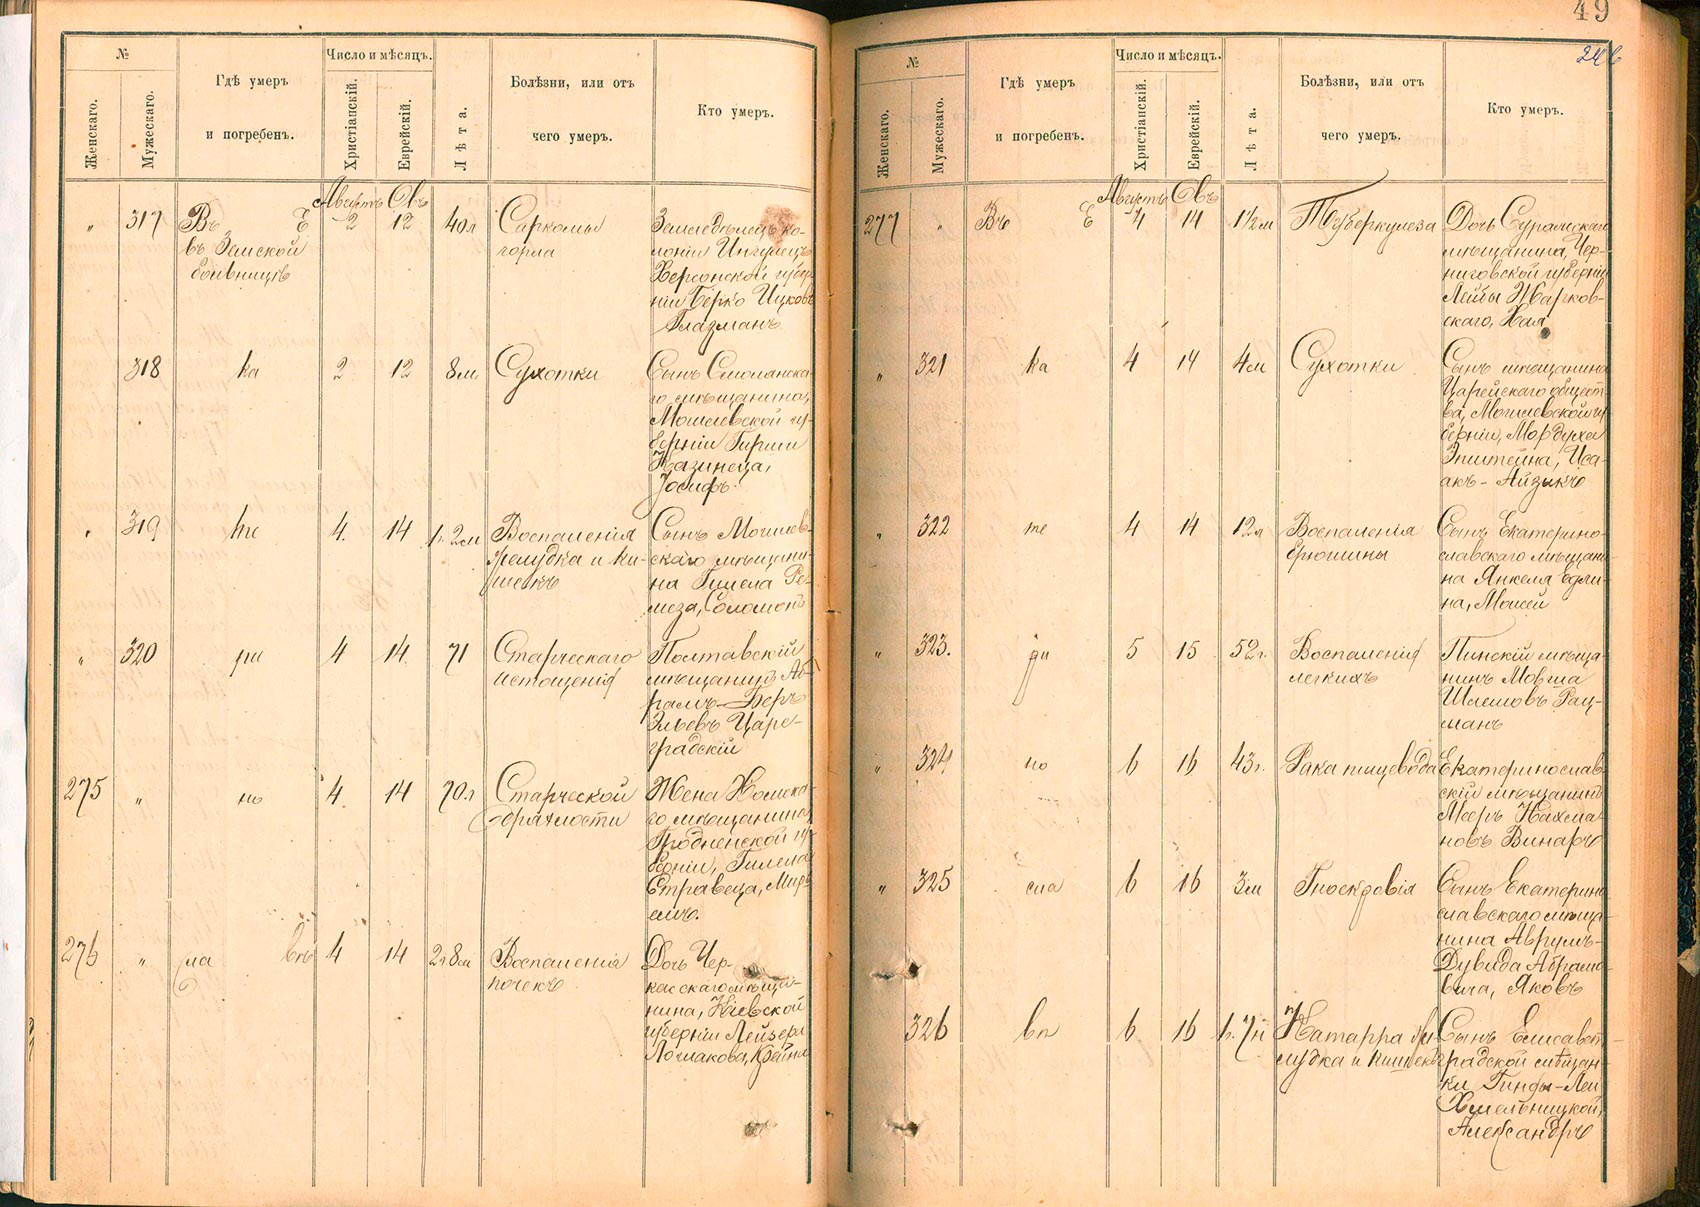 49
246
№
Женскаго.
Мужескаго.
Гдѣ умеръ
и погребенъ.
Число и мѣсяцъ.
Христіанскій.
Еврейскій.
Лѣта.
Болѣзни, или отъ
чего умеръ.
Кто умеръ.
Августъ Овъ
" 317 Въ Е 2 12 40л Саркомы Земледѣлецъ ко-
въ Земской горла лоніи Ингулецъ
больницѣ Херсонской губер-
ніи Берко Ицковъ
Глазманъ
318 ка 2 12 8м Сухотки Сынъ
го мѣщанина,
Могилевской гу-
берніи Гирши
Казинеца,
Іосифъ.
" 319 те 4 14 1г. 2м Воспаленія Сынъ Могилев-
желудка и ки- скаго мѣщани-
шекъ на Гилела Ре-
меза, Соломонъ
" 320 ри 4 14 71 Старческаго Полтавскій
истощенія мѣщанинъ Аб-
рамъ-Беръ
Эльевъ Царе-
градскій
275 " но 4 14 70л Старческой Жена
дряхлости го мѣщанина,
Гродненской гу-
берніи, Гилела
Мирь-
емъ.
276 " ла 4 14 2г. 8м Воспаленія Дочь Чер-
почекъ касскаго мѣща-
нина, Кіевской
губерніи Лейзера
Логлакова, Крайна
№
Женскаго.
Мужескаго.
Гдѣ умеръ
и погребенъ.
Число и мѣсяцъ.
Христіанскій.
Еврейскій.
Лѣта.
Болѣзни, или отъ
чего умеръ.
Кто умеръ.
Августъ Овъ
277 " Въ Е 4 14 1½м Туберкулеза Дочь Суражскаго
мѣщанина, Чер-
ниговской губерніи
Лейбы Жарков-
скаго, Хая
" 321 ка 4 14 4м Сухотки Сынъ мѣщанина
Царейскаго общест-
ва, Могилевской гу-
берніи, Мордуха
Эпштейна, Иса-
акъ-Айзыкъ
" 322 те 4 14 12л Воспаленія Сынъ Екатерино-
брюшины славскаго мѣщани-
на Янкеля Едли-
на, Моисей
" 323. ри 5 15 52г. Воспаленія Пинскій мѣща-
легкихъ нинъ Мовша
Шлемовъ Рац-
манъ
" 324 но 6 16 43г. Рака пищевода Екатеринослав-
скій мѣщанинъ
Мееръ Нахма-
новъ Винаръ
" 325 сла 6 16 3м Гноекровія Сынъ Екатерино-
славскаго мѣща-
нина Аврумъ-
Дувида Абрамо-
вича, Яковъ
326 вл 6 16 1г. 7м Катарра же- Сынъ Елисавет-
лудка и кишекъ градской мѣщан-
ки Гинды-Леи
Хмельницкой,
Александръ